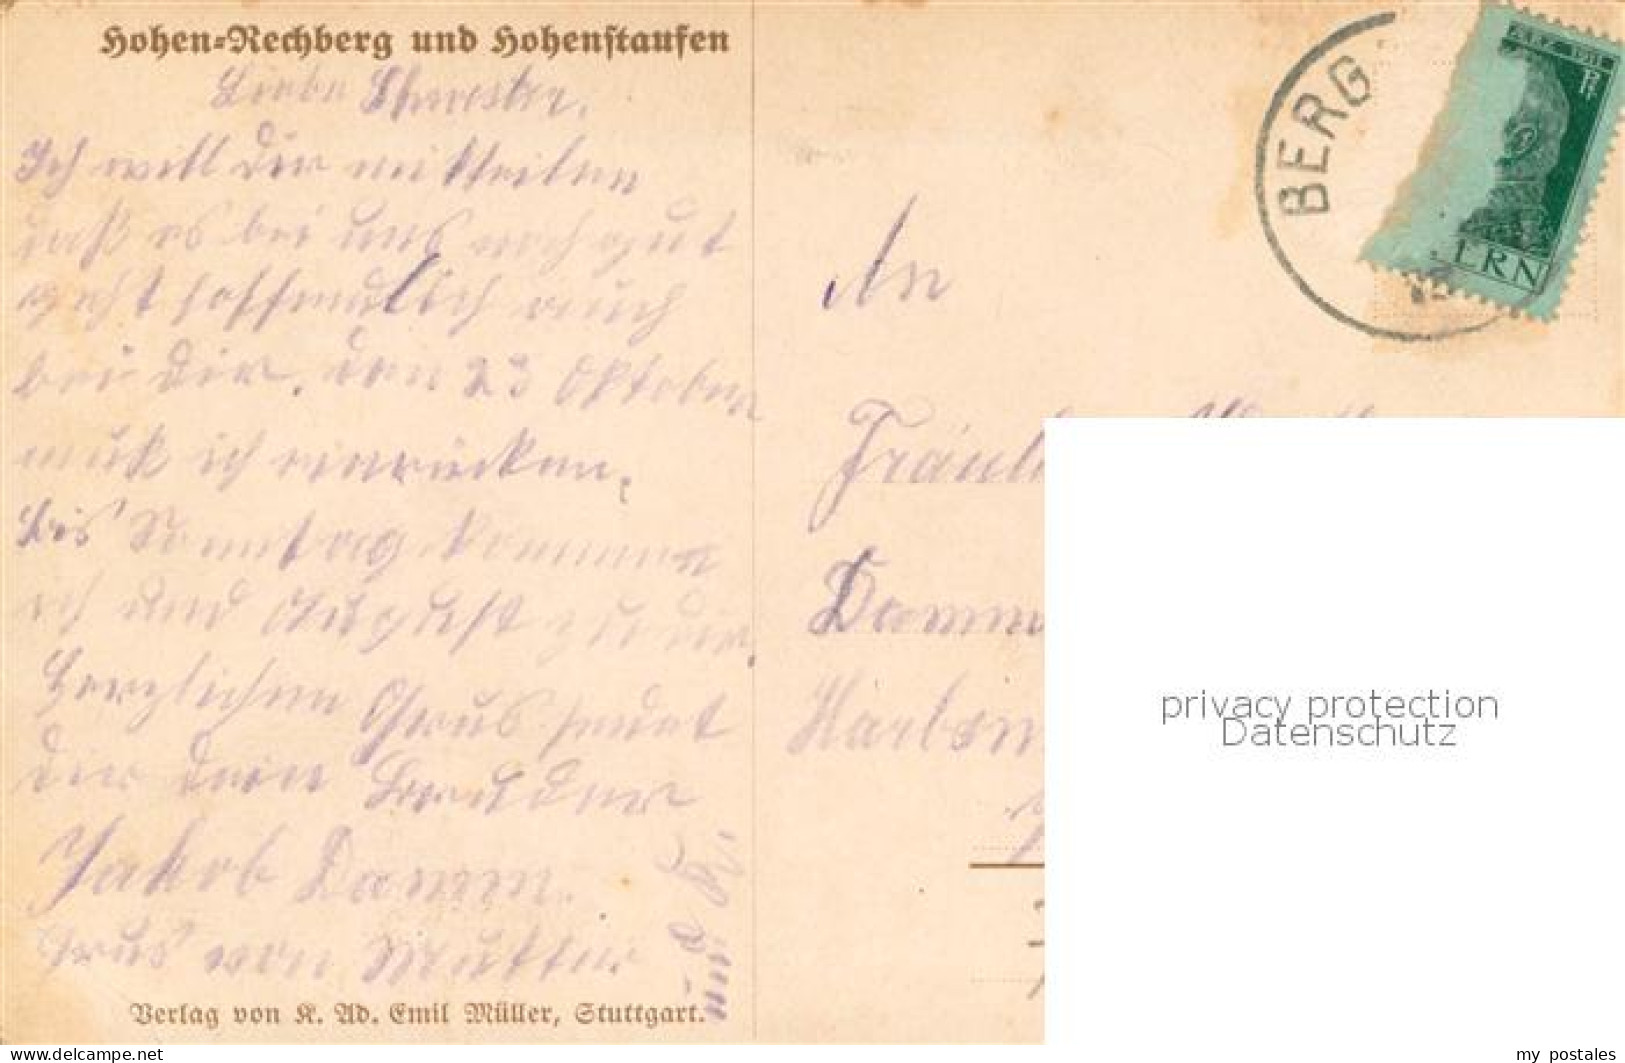 Hohen-Rechberg und Hohenstaufen
Liebe Schwester.
Ich will Dir mitteilen
daß es bei uns noch gut
geht hoffendlich auch
bei Dir. den 23 Oktober
muß ich einrücken.
bis Sonntag kommen
ich und August zu dir.
Herzlichen Grus sendet
dir dein Bruder
Jakob Damm.
Grus von Mutter
Verlag von K. Ad. Emil Müller, Stuttgart.
BERG
ERN
An
Fräul
Damm
privacy protection
Datenschutz
https://www.delcampe.net
my postales